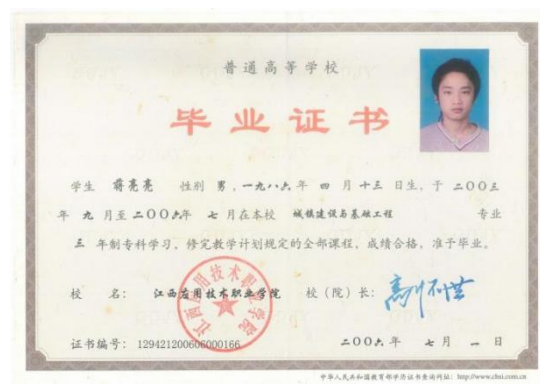 普通高等学校
毕业证书
学生 蒋亮亮 性别 男，一九八六年 四 月 十三 日生，于 二〇〇三
年 九 月至 二〇〇六年 七 月在本校 城镇建设与基础工程 专业
三 年制专科学习，修完教学计划规定的全部课程，成绩合格，准予毕业。
校 名： 江西应用技术职业学院 校（院）长：
江西应用技术职业学院
证书编号：129421200606000166 二〇〇六年 七 月 一 日
中华人民共和国教育部学历证书查询网址：http://www.chsi.com.cn